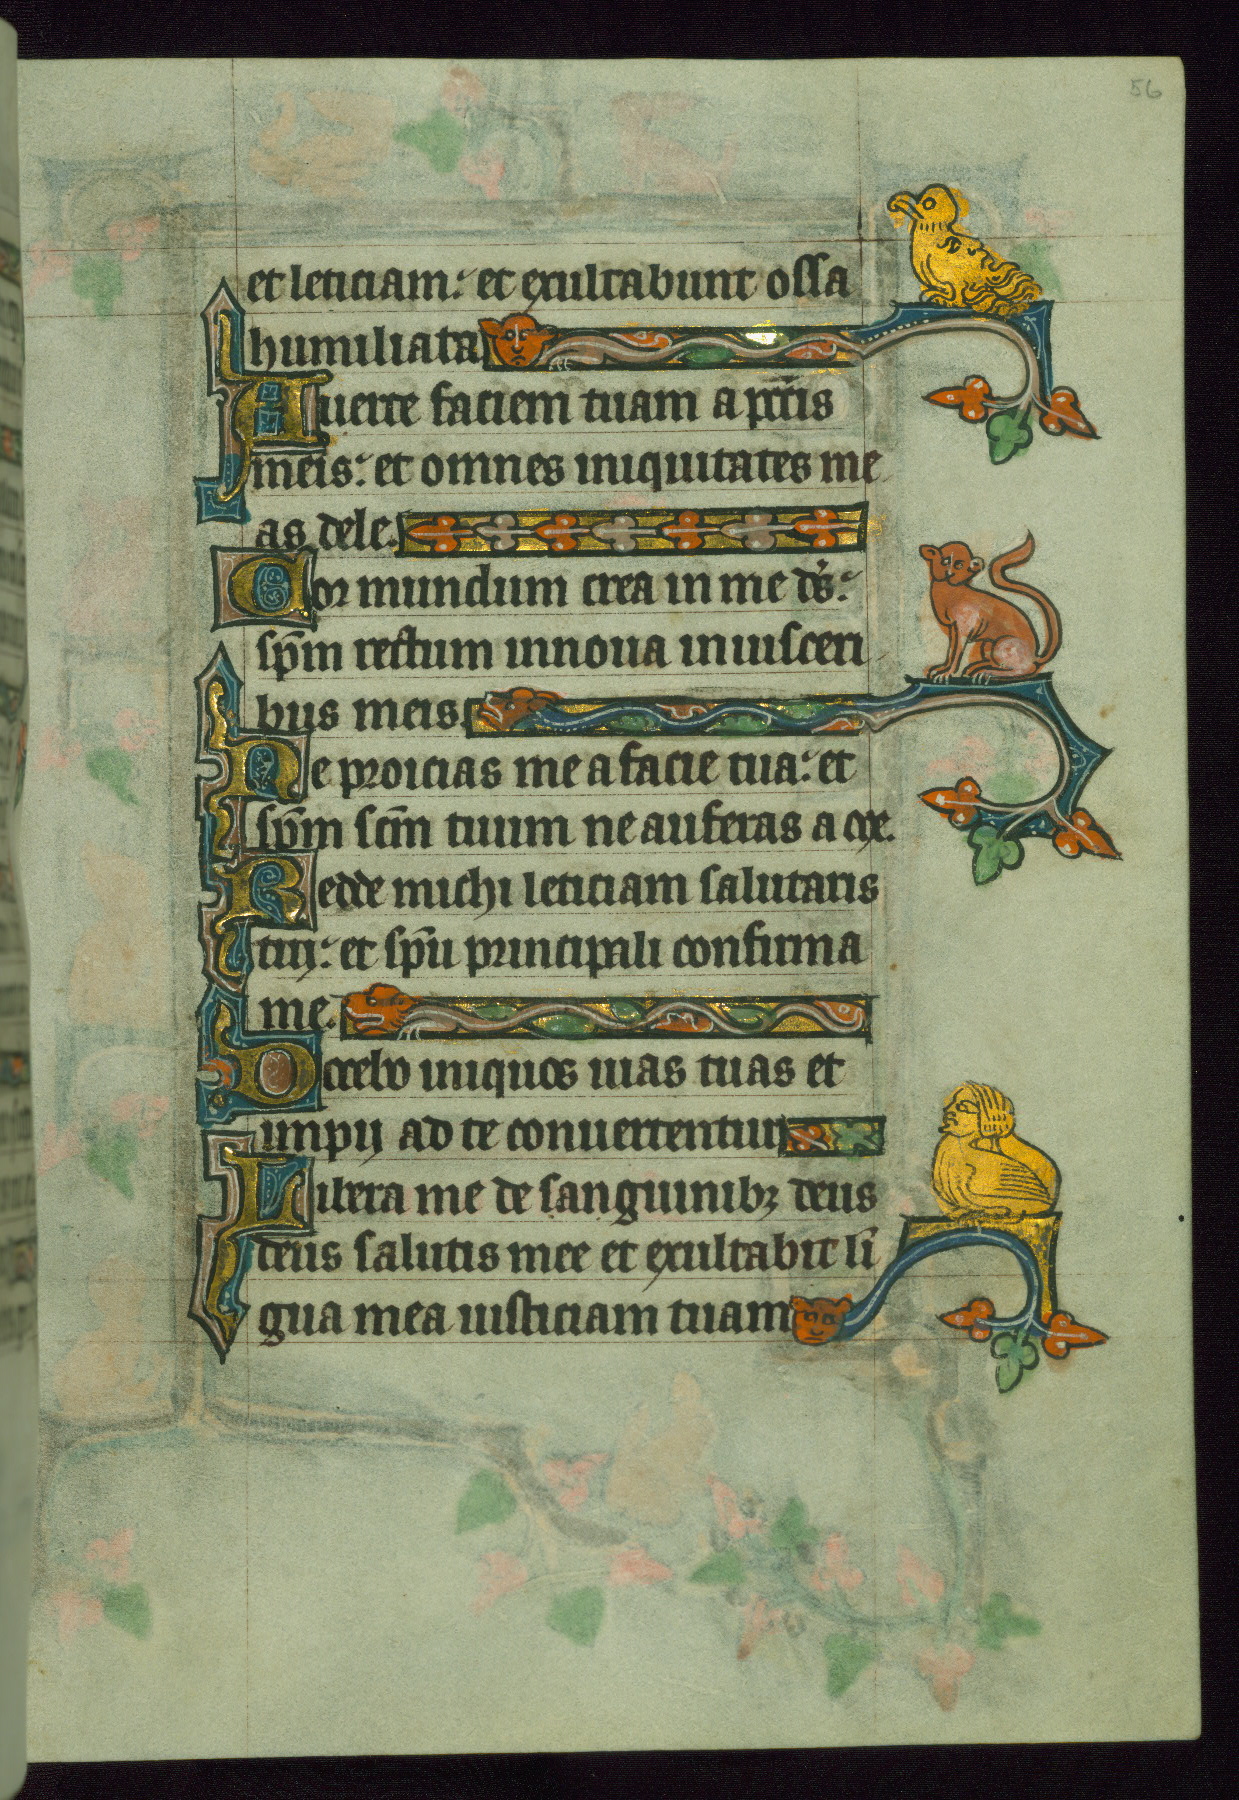 56
et leticiam: et exultabunt ossa
humiliata
Auerte faciem tuam a pccīs
meis: et omnes iniquitates me
as dele.
Cor mundum crea in me ds̄:
sp̄m rectum innoua in uisceri
bus meis.
Ne proicias me a facie tua: et
sp̄m sc̄m tuum ne auferas a me.
Redde michi leticiam salutaris
tui: et sp̄u principali confirma
me.
Docebo iniquos uias tuas et
impij ad te conuertentur
Libera me de sanguinibꝫ deus
deus salutis mee et exultabit li̅
gua mea iusticiam tuam